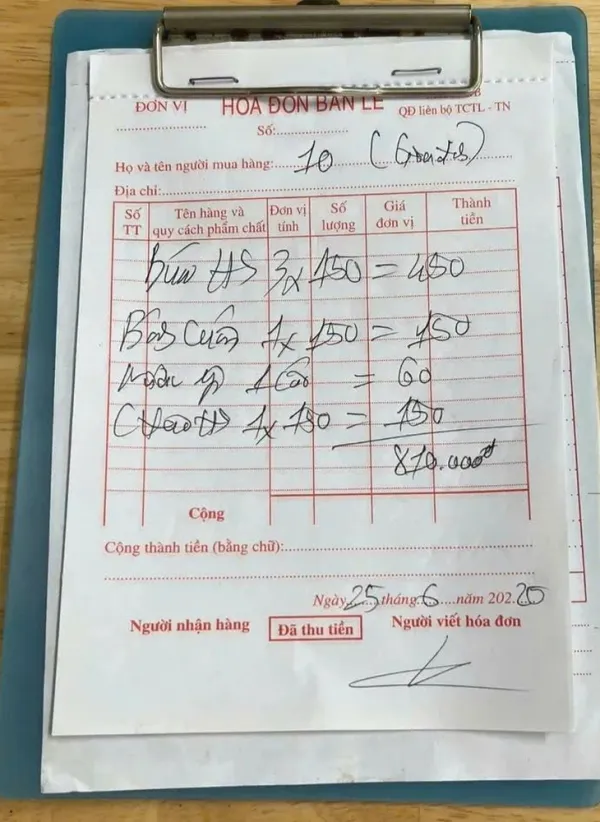 ĐƠN VỊ HÓA ĐƠN BÁN LẺ QĐ liên bộ TCTL - TN
Số:
Họ và tên người mua hàng: 10
Địa chỉ:
Số TT Tên hàng và quy cách phẩm chất Đơn vị tính Số lượng Giá đơn vị Thành tiền
Bún HS 3 x 150 = 450
Bánh Cuốn 1 x 150 = 150
= 60
Cháo HS 1 x 150 = 150
810.000đ
Cộng
Cộng thành tiền (bằng chữ):
Ngày 25 tháng 6 năm 202 20
Người nhận hàng Đã thu tiền Người viết hóa đơn